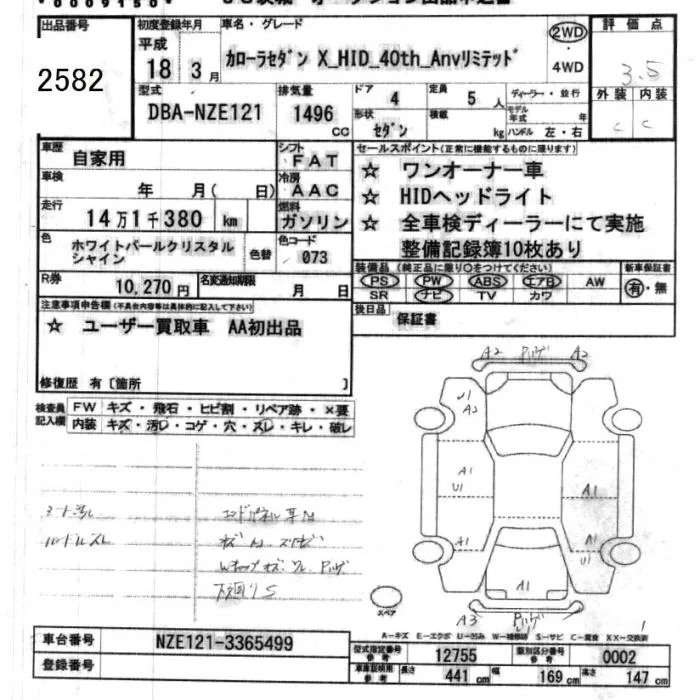 出品番号
2582
初度登録年月
平成
18 3月
車名・グレード
カローラセダン X_HID_40th_Anvリミテッド
2WD
・
4WD
評価点
3.5
外装 内装
C C
型式
DBA-NZE121
排気量
1496 CC
ドア 4
形状 セダン
定員 5 人
積載 kg
ディーラー・並行
モデル年式 年
ハンドル 左・右
車歴
自家用
シフト
FAT
車検
年 月( 日)
冷房
AAC
走行
14万1千380 km
燃料
ガソリン
色
ホワイトパールクリスタル
シャイン
色替
色コード
073
R券
10,270円
名変通知期限
月 日
セールスポイント(正常に機能するものに限ります)
☆ ワンオーナー車
☆ HIDヘッドライト
☆ 全車検ディーラーにて実施
整備記録簿10枚あり
装備品 (純正品に限り○をつけてください)
PS PW ABS エアB AW
SR ナビ TV カワ
新車保証書
有・無
後日品
保証書
注意事項申告欄(不具合内容等は具体的に記入して下さい)
☆ ユーザー買取車 AA初出品
修復歴 有〔箇所 〕
検査員記入欄
FW キズ・飛石・ヒビ割・リペア跡・×要
内装 キズ・汚レ・コゲ・穴・スレ・キレ・破レ
A2 A2
U1
A2
A1
U1
A1
A1
A1
U1
A1
A3
スペア
A-キズ E-エクボ U-凹み W-補修跡 S-サビ C-腐食 XX-交換済
車台番号
NZE121-3365499
登録番号
型式指定番号 参考
12755
類別区分番号 参考
0002
車庫証明用 参考
長さ 441 cm
幅 169 cm
高さ 147 cm